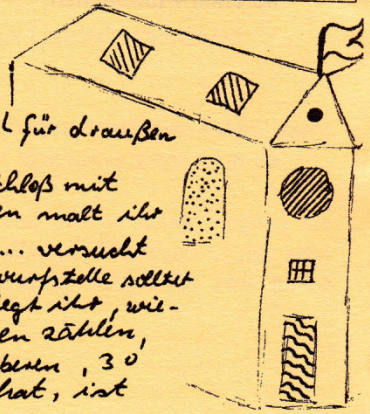 für draußen
chloß mit
en malt ihr
... versucht
wurfstelle solltet
legt ihr, wie-
en zählen,
beren, 30
hat, ist